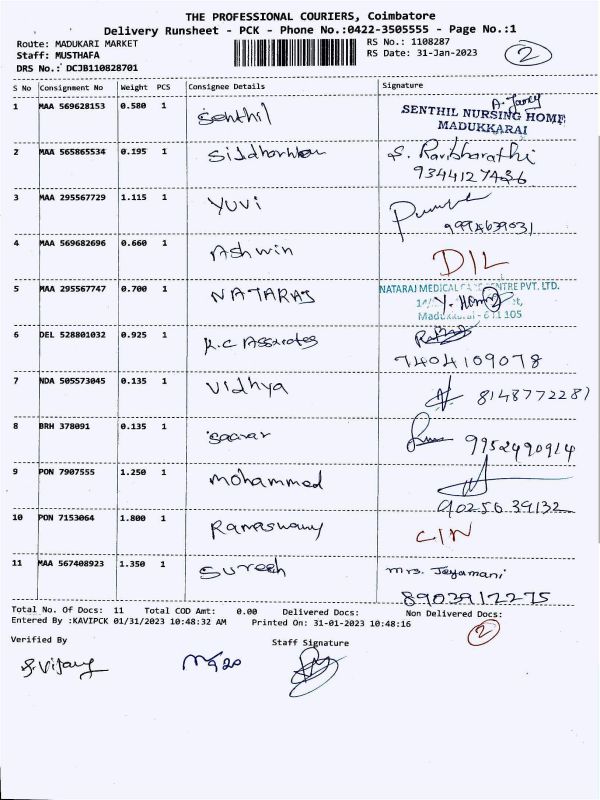 THE PROFESSIONAL COURIERS, Coimbatore
Delivery Runsheet - PCK - Phone No.:0422-3505555 - Page No.:1
Route: MADUKARI MARKET RS No.: 1108287
Staff: MUSTHAFA RS Date: 31-Jan-2023 2
DRS No.: DCJB110828701
S No Consignment No Weight PCS Consignee Details Signature
1 MAA 569628153 0.580 1 Senthil A. Jancy
SENTHIL NURSING HOME
MADUKKARAI
2 MAA 565865534 0.195 1 S. Ravibharathi
9344127436
3 MAA 295567729 1.115 1 Yuvi
4 MAA 569682696 0.660 1 Ashwin D/L
5 MAA 295567747 0.700 1 NATARAJ NATARAJ MEDICAL CENTRE PVT. LTD.
Madukkarai - 641 105
6 DEL 528801032 0.925 1 K.C Associates
7404109078
7 NDA 505573045 0.135 1 Vidhya 8148772287
8 BRH 378091 0.135 1 9952490914
9 PON 7907555 1.250 1 mohammed
9025639132
10 PON 7153064 1.800 1 Ramaswamy C/N
11 MAA 567408923 1.350 1 Suresh Mrs. Jayamani
8903912275
Total No. Of Docs: 11 Total COD Amt: 0.00 Delivered Docs: Non Delivered Docs:
Entered By :KAVIPCK 01/31/2023 10:48:32 AM Printed On: 31-01-2023 10:48:16 2
Verified By Staff Signature
S. Vijay